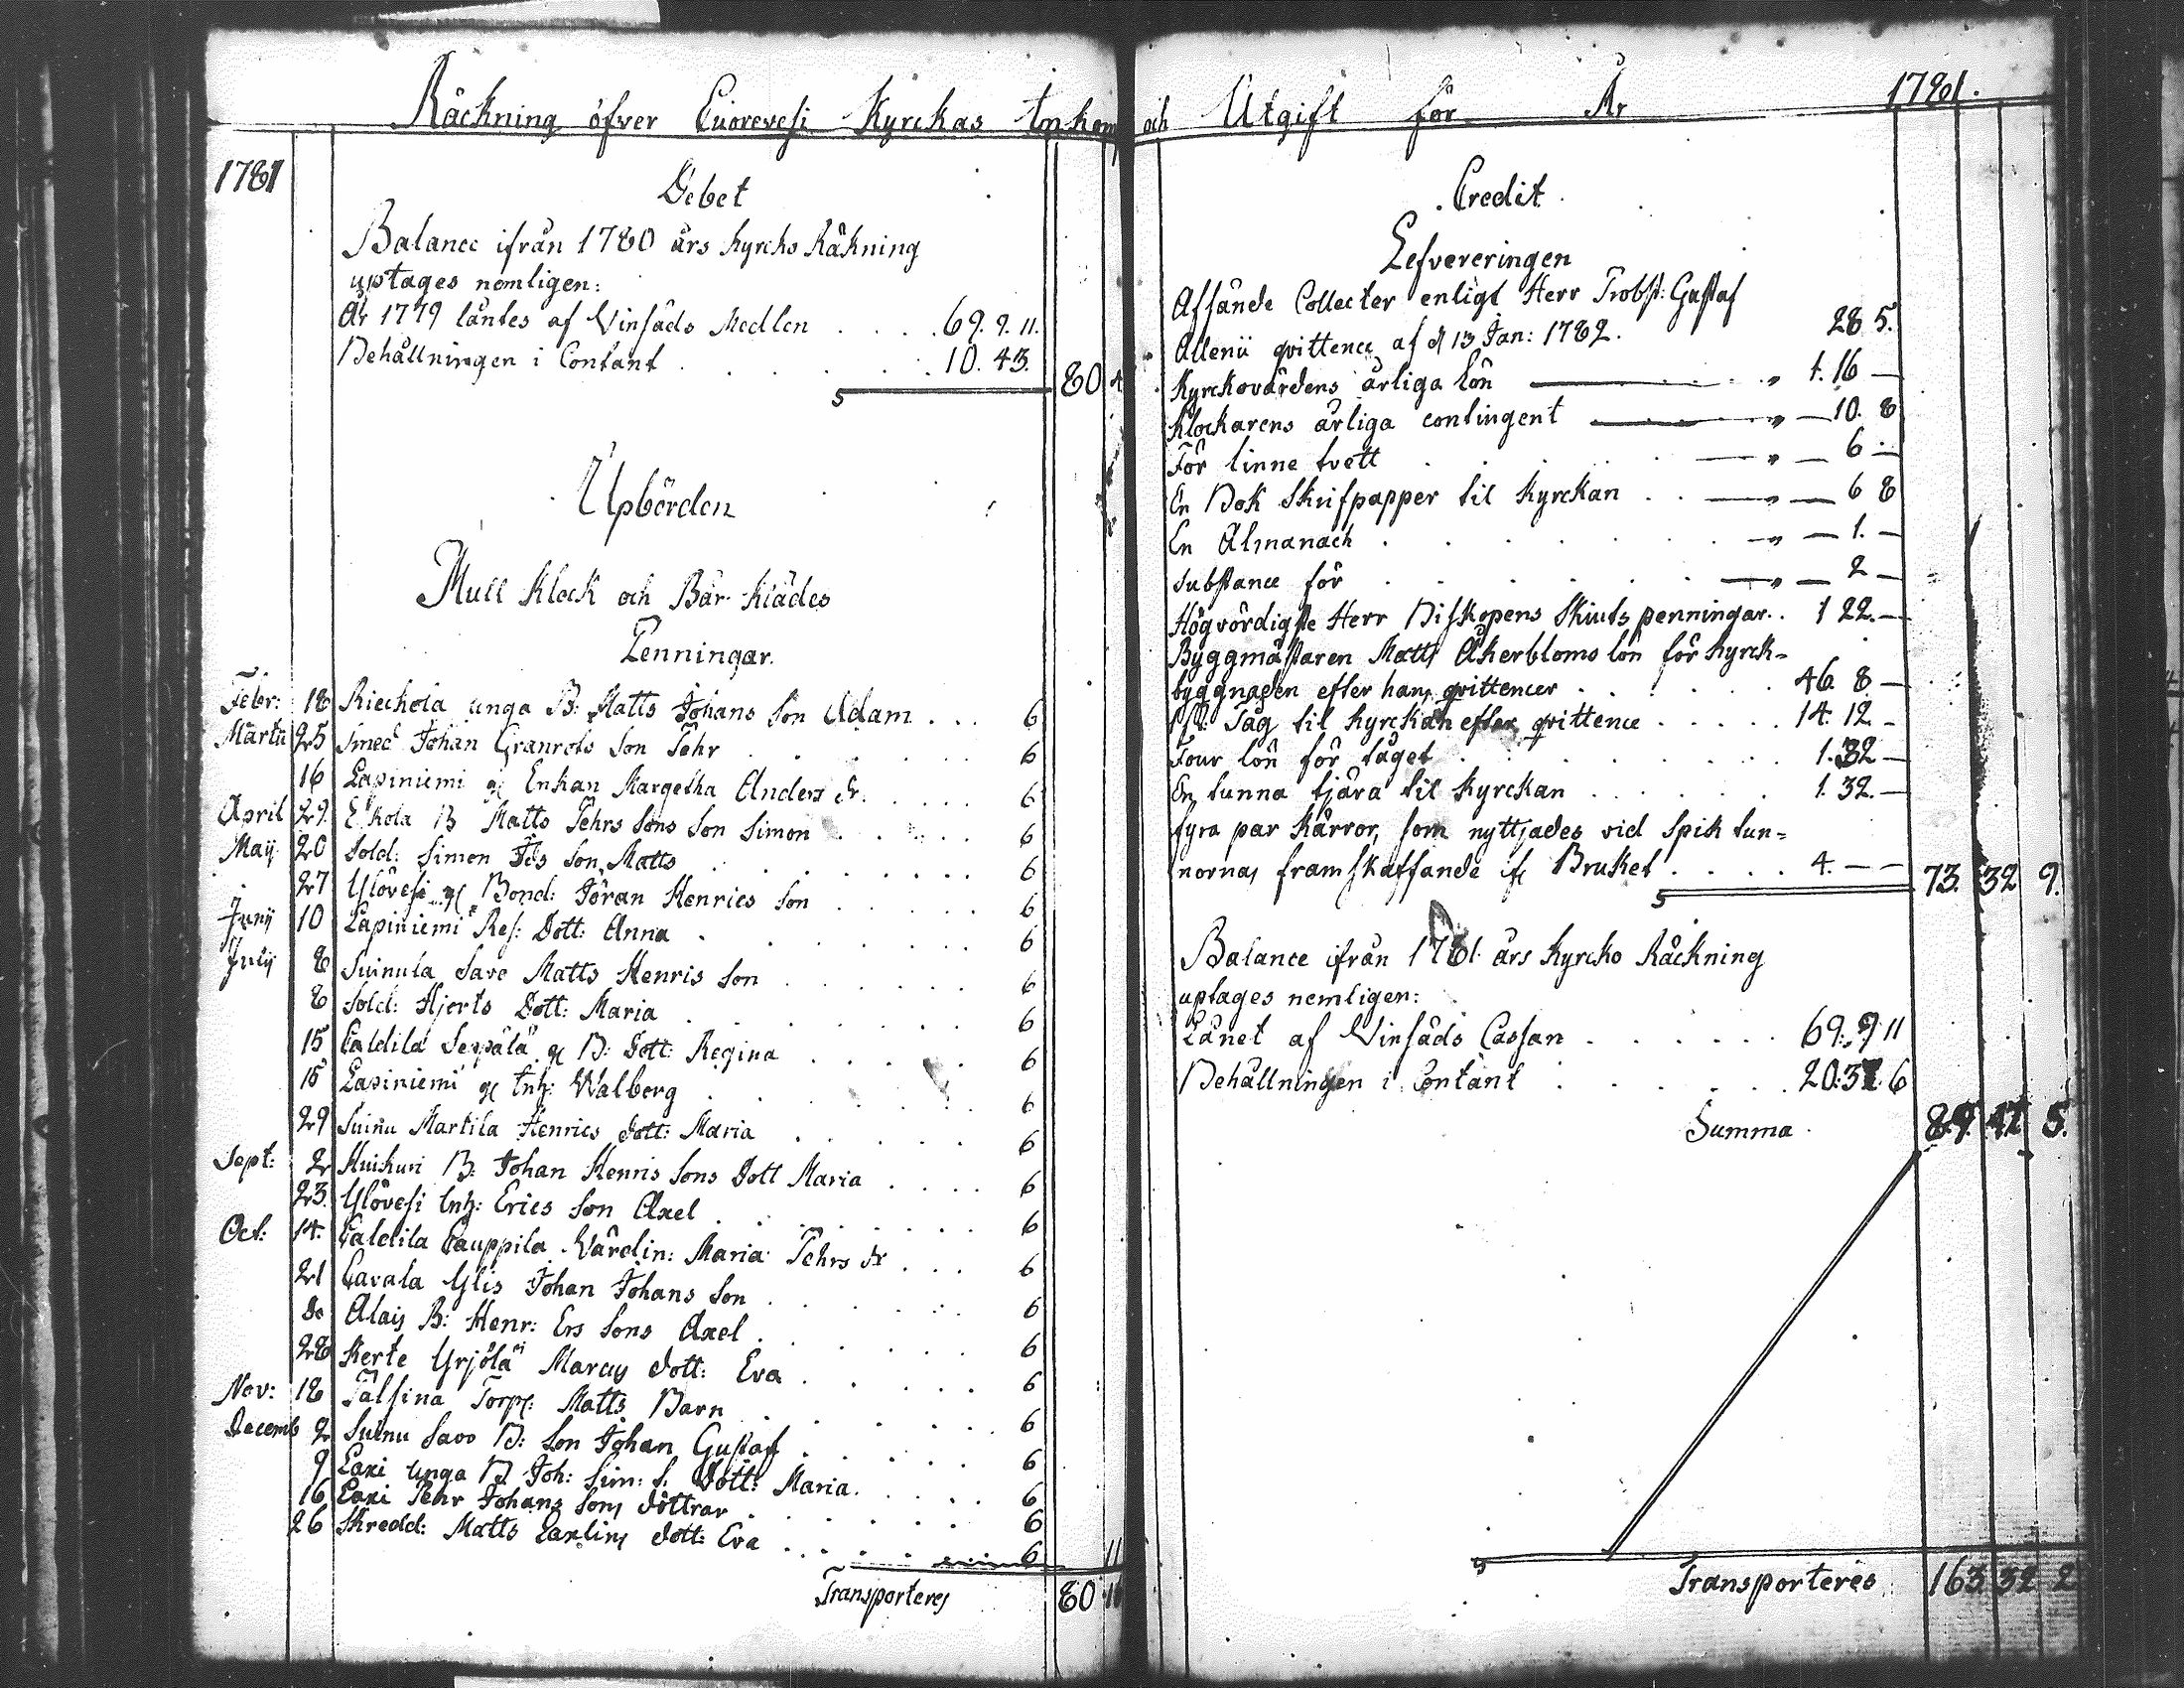 Räckning öfver Cuorevesi Kyrckas Inkom
1781
Debet
Balance ifrån 1780 års Kyrcko Räkning
uptages nemligen:
År 1779 låntes af Vinsäds Medlen . . . . 69. 9. 11.
Behållningen i Contant . . . . . . 10. 43.
80 4
Upbörden
Mull Klock och Bår-Klädes
Penningar.
Febr: 18 Riechola unga B: Matts Johans Son Adam . . . 6
Martii 25 Smed Johan Granrots Son Pehr . . . 6
16 Lapiniemi Enkan Margetha Anders dr. . . . 6
April 29. Eskola B Matts Pehrs Sons Son Simon . . . 6
Maij 20 Sold: Simon Js Son Matts . . . 6
27 Ylövesi Bond: Jöran Henrics Son . . . 6
Junij 10 Lapiniemi Res: Dott: Anna . . . 6
July 8 Suinula Savo Matts Henris Son . . . 6
8 Sold: Hjerts Dott: Maria . . . 6
15 Caldila Seppälä B: Dott: Regina . . . 6
15 Lapiniemi Inh: Walberg . . . 6
29 Suinu Martila Henrics dott: Maria . . . 6
Sept: 2 Huikuri B: Johan Henris Sons Dott Maria . . . 6
23. Ylövesi Inh: Erics Son Axel . . . 6
Oct: 14. Caldila Cauppila Värdin: Maria Pehrs dr . . . 6
21 Cavala Ylis Johan Johans Son . . . 6
do Alais B: Henr: Ers Sons Axel . . . 6
28 Kerte Yrjölä Marcus dott: Eva . . . 6
Nov: 18 Palsina Torp: Matts Barn . . . 6
Decemb 2 Suinu Savo B: Son Johan Gustaf . . . 6
9 Laxi unga B Joh: Sim: S. Dott: Maria . . . 6
16 Laxi Pehr Johans Sons döttrar . . . 6
26 Skredd: Matts Laxlins dott: Eva . . . 6 11
Transporteres 80
och Utgift för År 1781.
Credit
Lefvereringen
Afsände Collecter enligt Herr Probst: Gustaf
Allenii qvittence af d 13 Jan: 1782. 28 5.
Kyrckovärdens årliga lön 1. 16 —
Klockarens årliga contingent — 10. 8
För linne tvett — 6 —
En Bok Skrifpapper til Kyrckan . . — 6 8
En Almanach . . . — 1. —
Substance för . . . — 2 —
Högvördigste Herr Biskopens Skiuts penningar . . 1 22. —
Byggmästaren Matts Åkerbloms lön för Kyrck-
byggnaden efter hans qvittencer . . . 46. 8 —
Tåg til Kyrckan efter qvittence . . . 14. 12 —
Four lön för tåget . . . 1. 32 —
En tunna tjära til Kyrckan . . . 1. 32. —
fyra par Kärror, som nyttjades vid Spik tun-
nornas framskaffande if: Bruket . . . . 4. — —
73. 32 9.
Balance ifrån 1781. års Kyrcko Räckning
uptages nemligen:
Lånet af Vinsäds Cassan . . . . . . 69. 9 11
Behållningen i Contant . . . 20. 37. 6
Summa 89. 47 5.
Transporteres 163 32 2